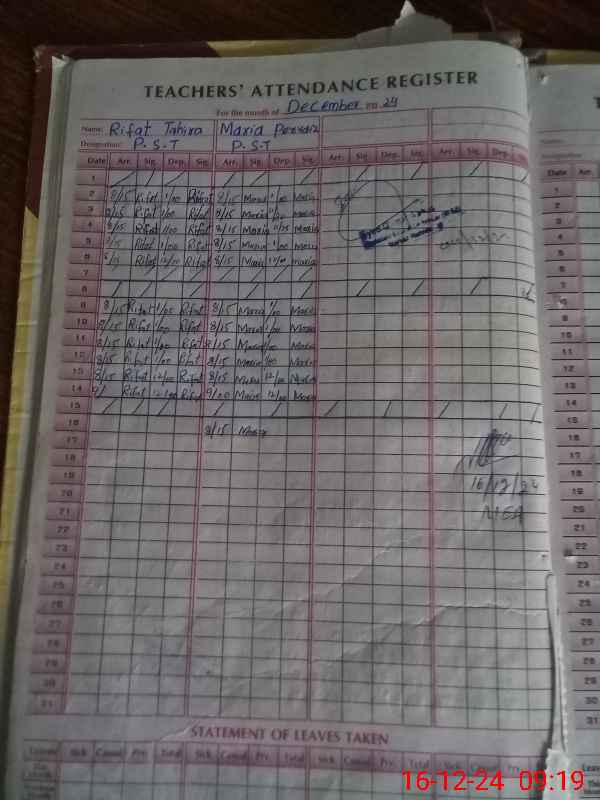 TEACHERS' ATTENDANCE REGISTER
For the month of December 20 24
Name: Rifat Tahira Maria
Designation: P.S.T P.S.T
Date Arr. Sig. Dep. Sig. Arr. Sig. Dep. Sig. Arr. Sig. Dep. Sig. Arr. Sig. Dep.
1
2 8/15 Rifat 1/00 Rifat 8/15 Maria 1/00 Maria
3 8/15 Rifat 1/00 Rifat 8/15 Maria Maria
4 8/15 Rifat 1/00 Rifat 8/15 Maria Maria
5 8/15 Rifat 1/00 Rifat 8/15 Maria 1/00 Maria
6 8/15 Rifat 12/00 Rifat 8/15 Maria 12/00 Maria
7
8
9 8/15 Rifat 1/00 Rifat 8/15 Maria 1/00 Maria
10 8/15 Rifat 1/00 Rifat 8/15 Maria 1/00 Maria
11 8/15 Rifat 1/00 Rifat 8/15 Maria 1/00 Maria
12 8/15 Rifat 1/00 Rifat 8/15 Maria 1/00 Maria
13 8/15 Rifat 12/00 Rifat 8/15 Maria 12/00 Maria
14 Rifat 12/00 Rifat 9/00 Maria 12/00 Maria
15
16 8/15 Maria
17
18
19 16/12/24
20 MEA
21
22
23
24
25
26
27
28
29
30
31
STATEMENT OF LEAVES TAKEN
Leaves Sick Casual Prv. Total Sick Casual Prv. Total Sick Casual Prv. Total Sick Casual Prv. Total
16-12-24 09:19